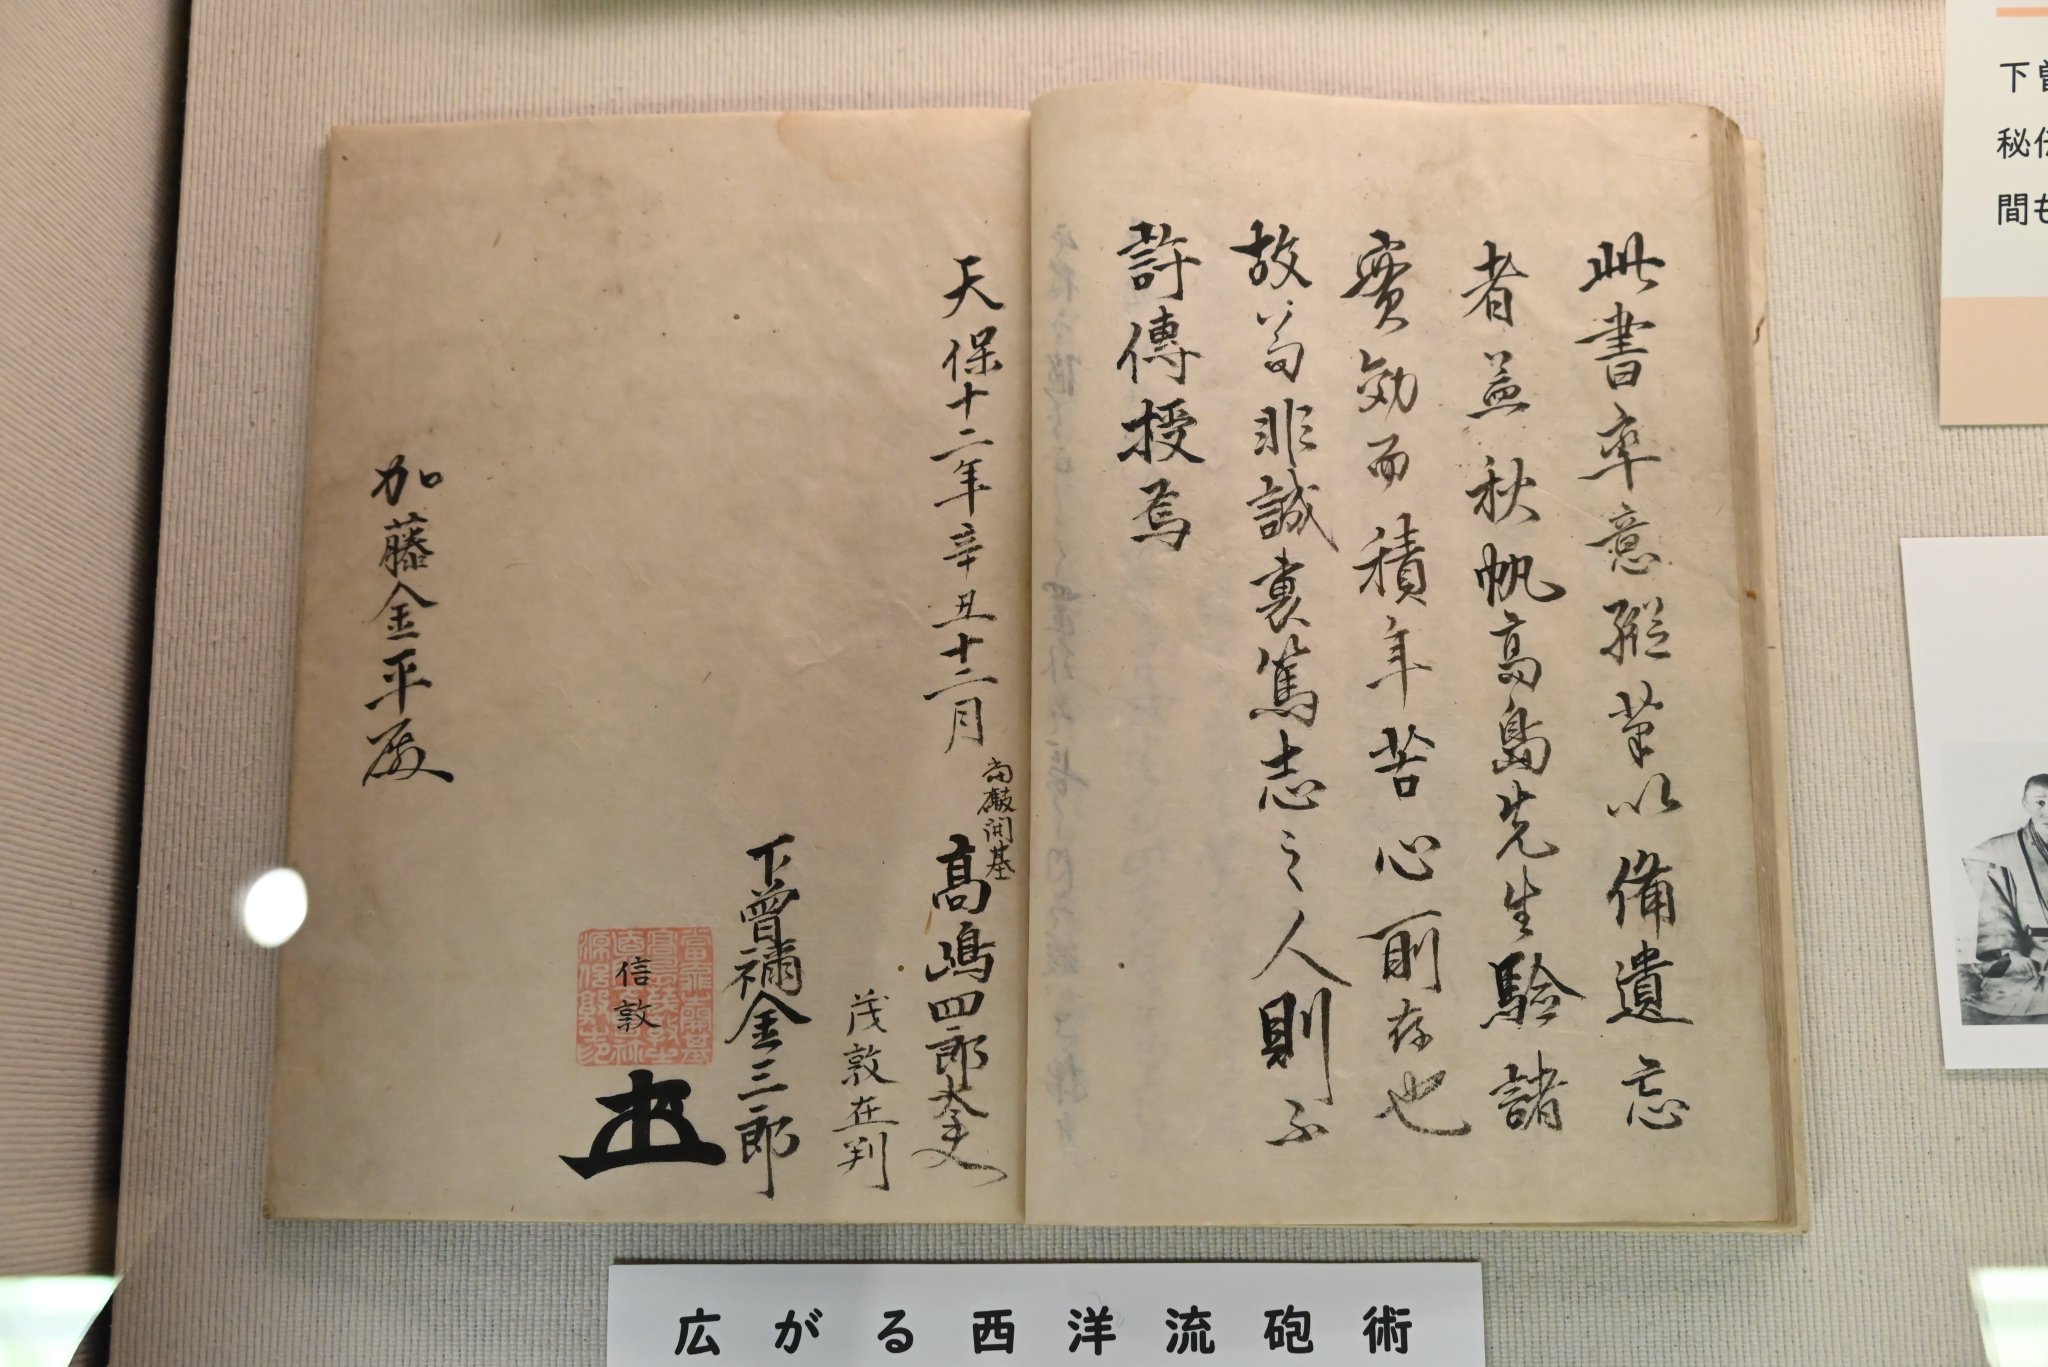 此書率意縱筆以備遺忘
者蓋秋帆高島先生驗諸
實効而積年苦心所存也
故苟非誠裏篤志之人則不
許傳授焉
天保十二年辛丑十二月
高嶋四郎太夫
茂敦在判
下曾禰金三郎
信敦
加藤金平殿
広がる西洋流砲術
下曽
秘伝
間も